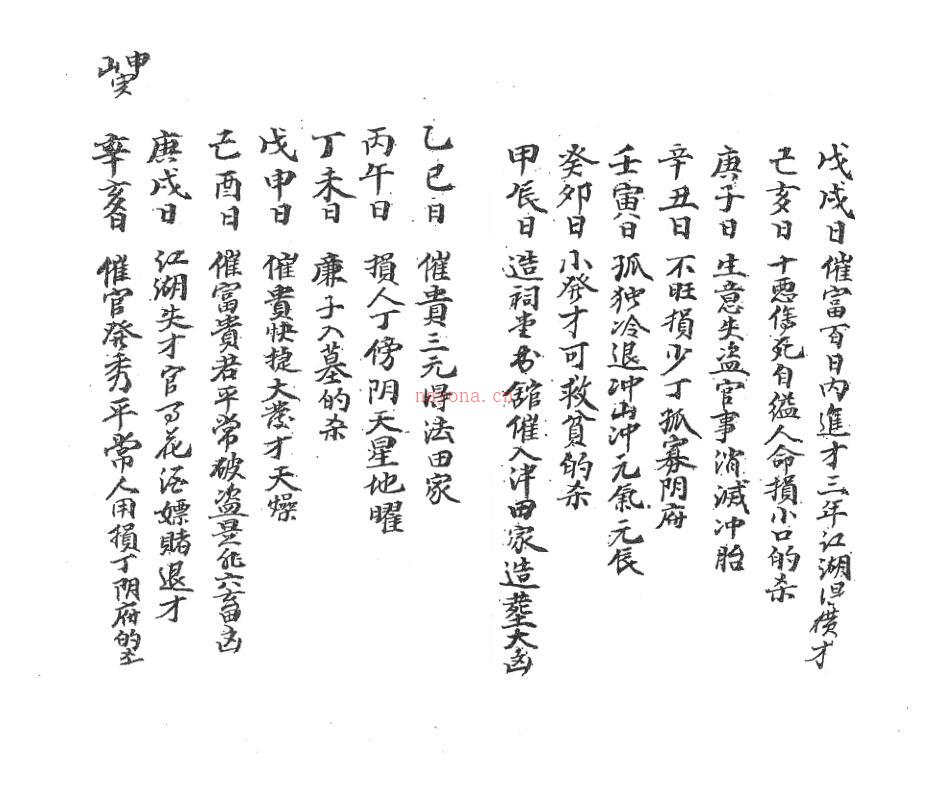 戊戌日催富百日内進才三年江湖得横才
己亥日十悪傷死自缢人命損小口的杀
庚子日生意失盗官事消滅冲胎
辛丑日不旺損少丁孤寡阴府
壬寅日孤独冷退冲山冲元氣元辰
癸卯日小發才可救貧的杀
甲辰日造祠堂书館催入泮田家造塟大凶
乙巳日催貴三元得法田家
丙午日損人丁傍阴天星地曜
丁未日廉子入墓的杀
戊申日催貴快捷大發才天燥
己酉日催富貴若平常破盗是非六畜凶
庚戌日江湖失才官司花酒嫖賭退才
辛亥日催官發秀平常人用損丁阴府的
申山
nayona.cn